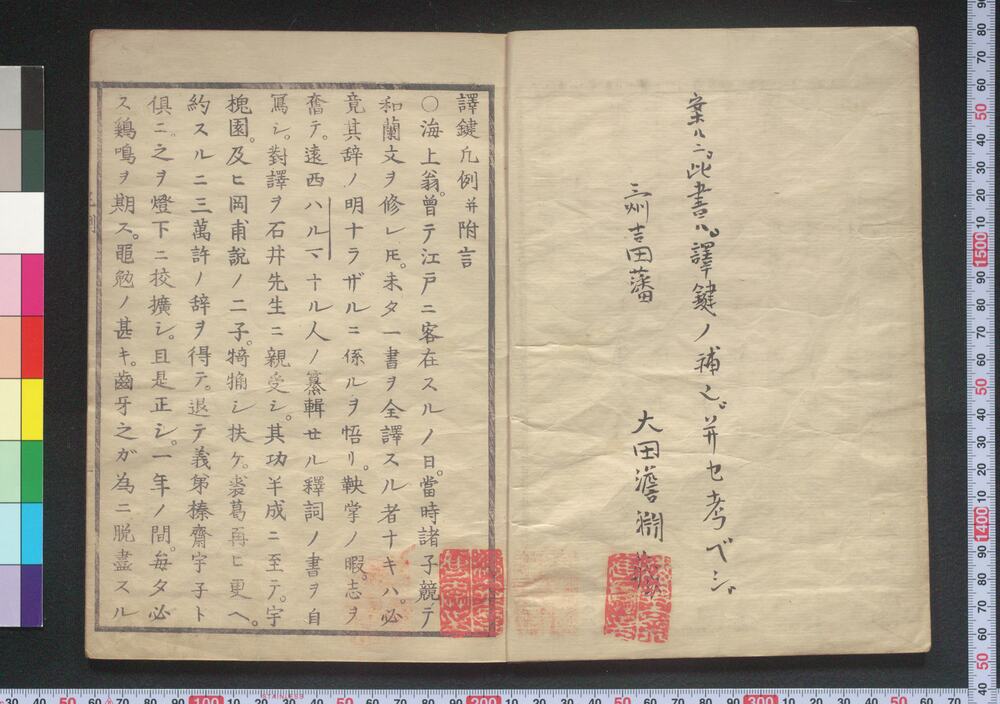 案ルニ此書ハ譯鍵ノ補也并セ考ベシ
三州吉田藩
大田澹淵蔵
譯鍵凡例并附言
〇海上翁。曾テ江戸ニ客在スルノ日。當時諸子競テ
和蘭文ヲ修レ𪜈。未タ一書ヲ全譯スル者ナキハ。必
竟其辞ノ明ナラザルニ係ルヲ悟リ。鞅掌ノ暇。志ヲ
奮テ。遠西ハルマナル人ノ纂輯せル釋詞ノ書ヲ自
寫シ。對譯ヲ石井先生ニ親受シ。其功半成ニ至テ。宇
槐園。及ヒ岡甫說ノ二子。犄捔シ扶ケ。裘葛再ヒ更ヘ。
約スルニ三萬許ノ辞ヲ得テ。退テ義弟榛齋宇子ト
俱ニ。之ヲ燈下ニ挍擴シ。且是正シ。一年ノ間。每タ必
ス鷄鳴ヲ期ス。黽勉ノ甚キ。齒牙之ガ為ニ脱盡スル